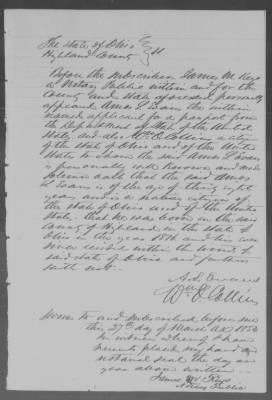 The State of Ohio } ss
Highland County
Before the subscriber James M. Keys
a Notary Public within and for the
County and State aforesaid personally
appeared Amos L. Evans the within
named applicant for a passport from
the Department of State of the United
States, and also Wm O. Collins a citizen
of the State of Ohio and of the United
States to whom the said Amos L Evans
is personally well known and made
solemn oath that the said Amos
L Evans is of the age of thirty eight
years and is a native citizen of
the State of Ohio and of the United
States, that he was born in the said
County of Highland in the State of
Ohio in the year and has ever
since resided within the County
said State of Ohio and further
saith not.
A. L. Evans
Wm O Collins
Sworn to and subscribed before me
this 27th day of March AD
In witness whereof I have
hereunto placed my hand and
notarial seal the day and
year above written
James M Keys
Notary Public